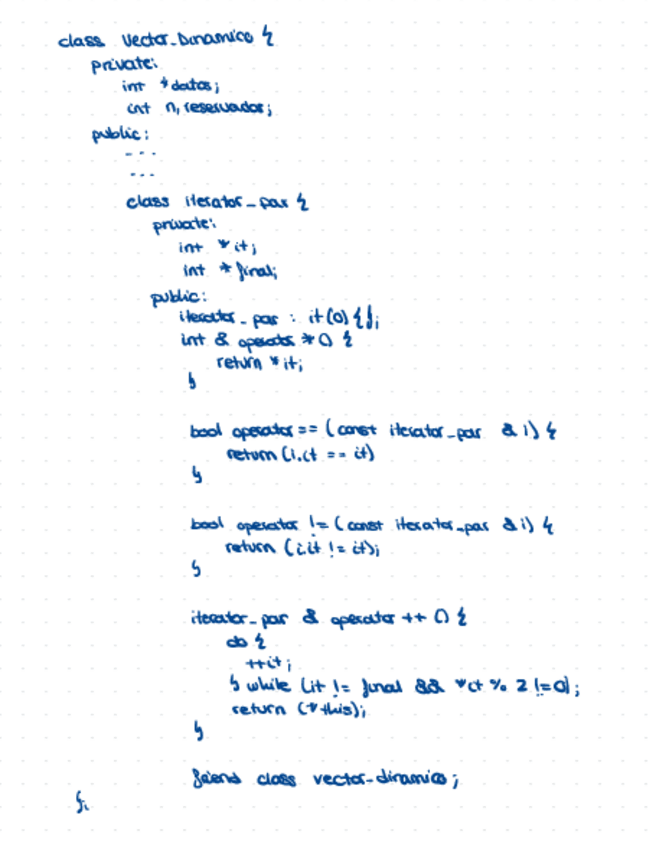 class Vector_Dinamico {
private:
int *datos;
int n, reservados;
public:
---
---
class iterator_par {
private:
int *it;
int *final;
public:
iterator_par : it(0) {};
int & operator *() {
return *it;
}
bool operator == (const iterator_par & i) {
return (i.it == it)
}
bool operator != (const iterator_par & i) {
return (i.it != it);
}
iterator_par & operator ++ () {
do {
++it;
} while (it != final && *it % 2 != 0);
return (*this);
}
friend class vector_dinamico;
};